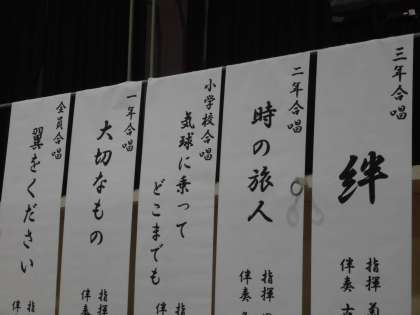 三年合唱
絆
指揮
伴奏
二年合唱
時の旅人
指揮
伴奏
小学校合唱
気球に乗って
どこまでも
一年合唱
大切なもの
指揮
伴奏
全員合唱
翼をください
指
伴